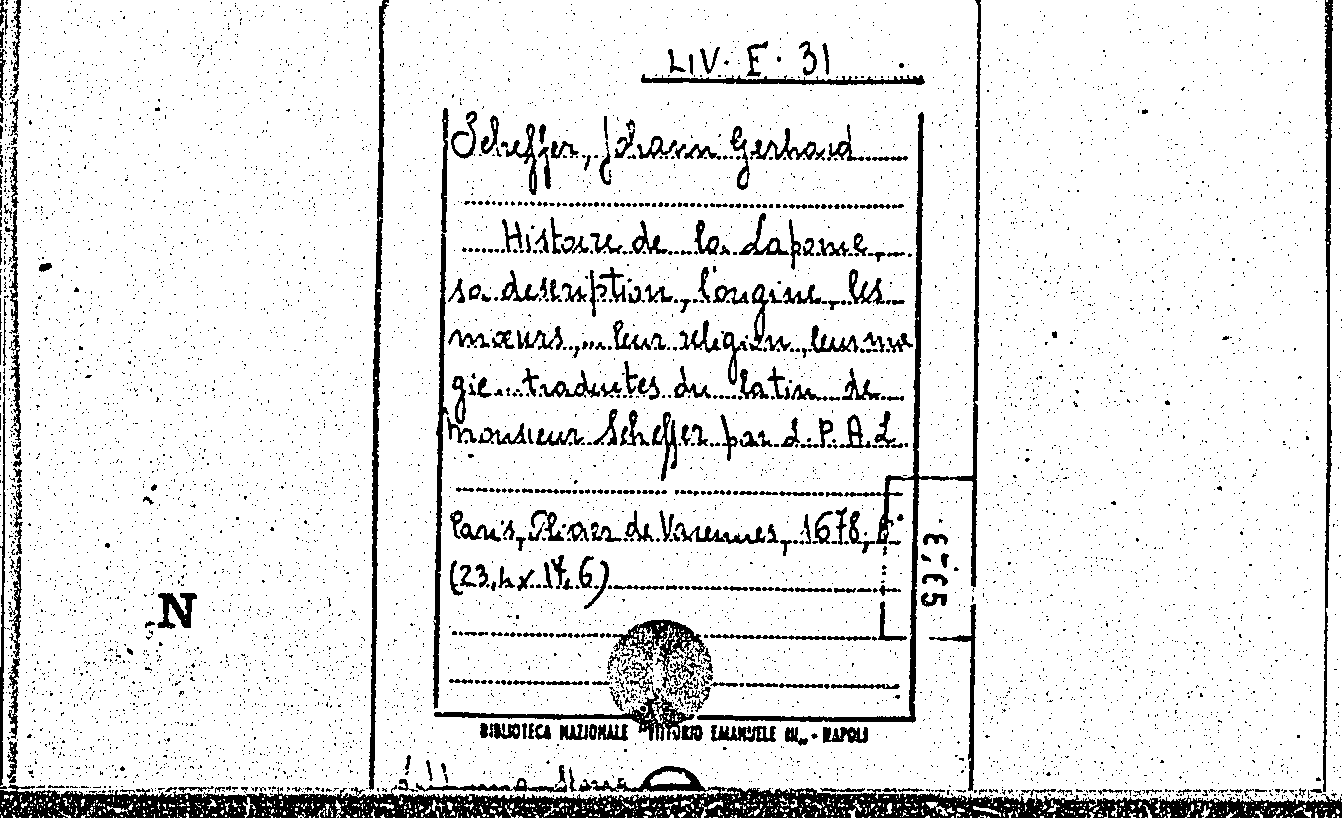 LIV. E. 31
Scheffer, Johann Gerhard
Histoire de la Laponie,
sa description, l'origine, les
mœurs,... leur religion, leur ma
gie... traduites du latin de
Monsieur Scheffer par L. P. A. L.
Paris, Olivier de Varennes, 1678, 8°
N
BIBLIOTECA NAZIONALE "VITTORIO EMANUELE III" - NAPOLI